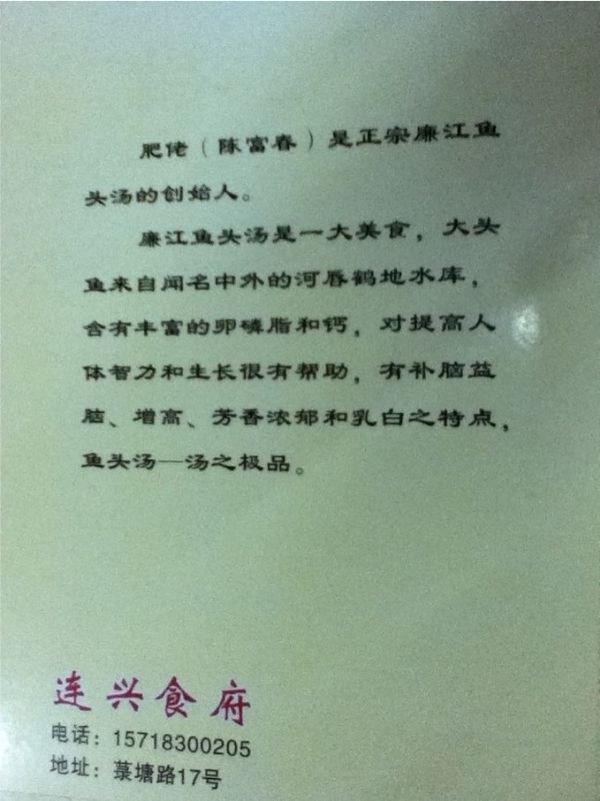 肥佬（陈富春）是正宗廉江鱼
头汤的创始人。
廉江鱼头汤是一大美食，大头
鱼来自闻名中外的河唇鹤地水库，
含有丰富的卵磷脂和钙，对提高人
体智力和生长很有帮助，有补脑益
脑、增高、芳香浓郁和乳白之特点，
鱼头汤—汤之极品。
连兴食府
电话：15718300205
地址：菉塘路17号